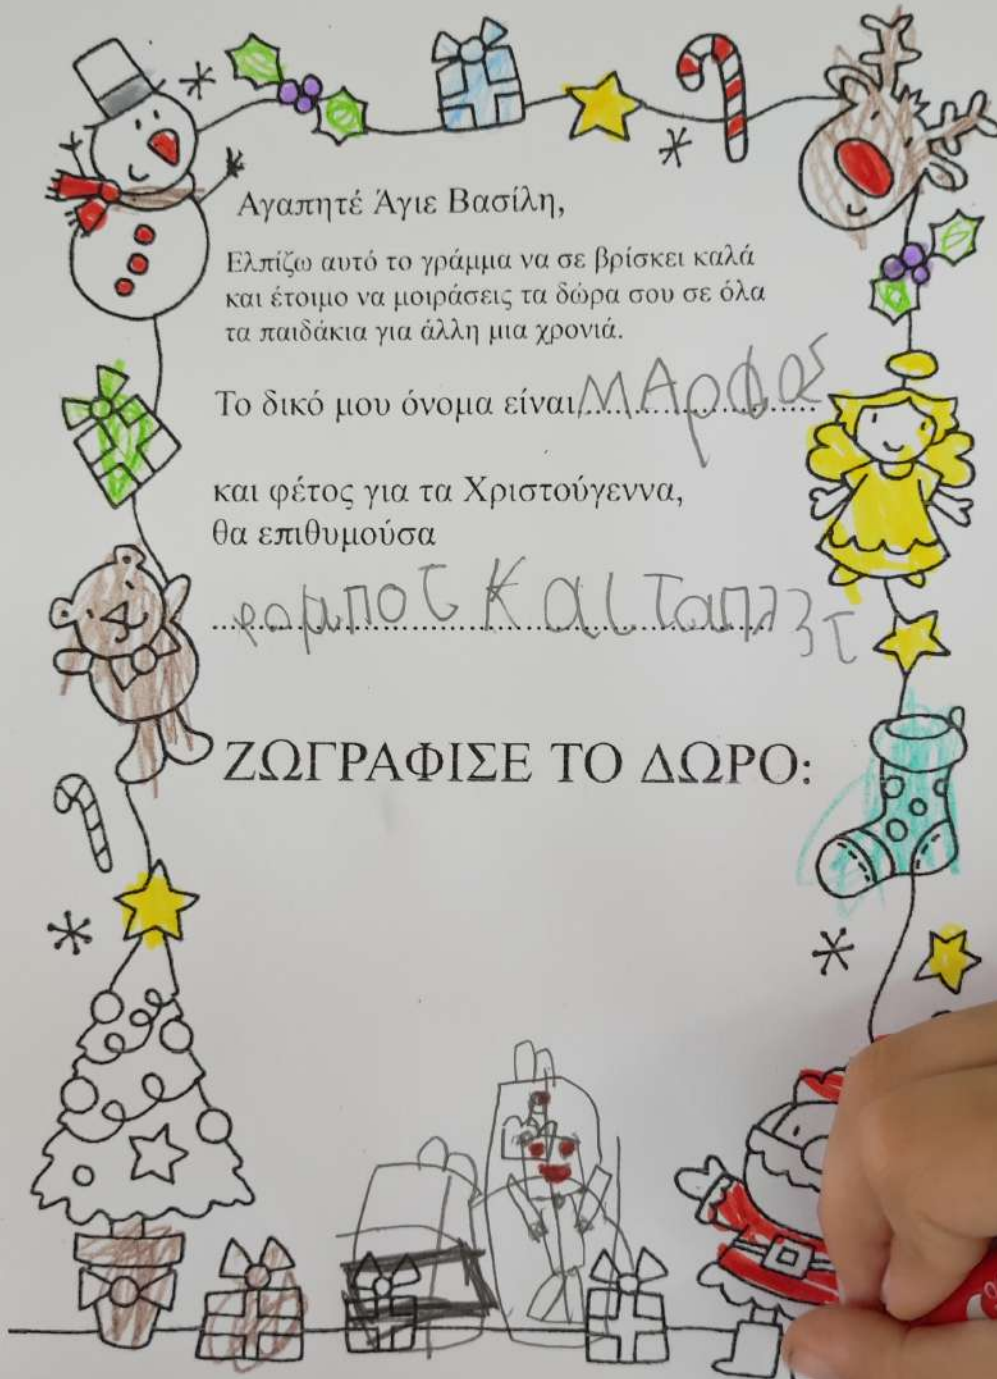 Αγαπητέ Άγιε Βασίλη,
Ελπίζω αυτό το γράμμα να σε βρίσκει καλά
και έτοιμο να μοιράσεις τα δώρα σου σε όλα
τα παιδάκια για άλλη μια χρονιά.
Το δικό μου όνομα είναι ΜΑρφας
και φέτος για τα Χριστούγεννα,
θα επιθυμούσα
ρομποτ Και
ΖΩΓΡΑΦΙΣΕ ΤΟ ΔΩΡΟ: